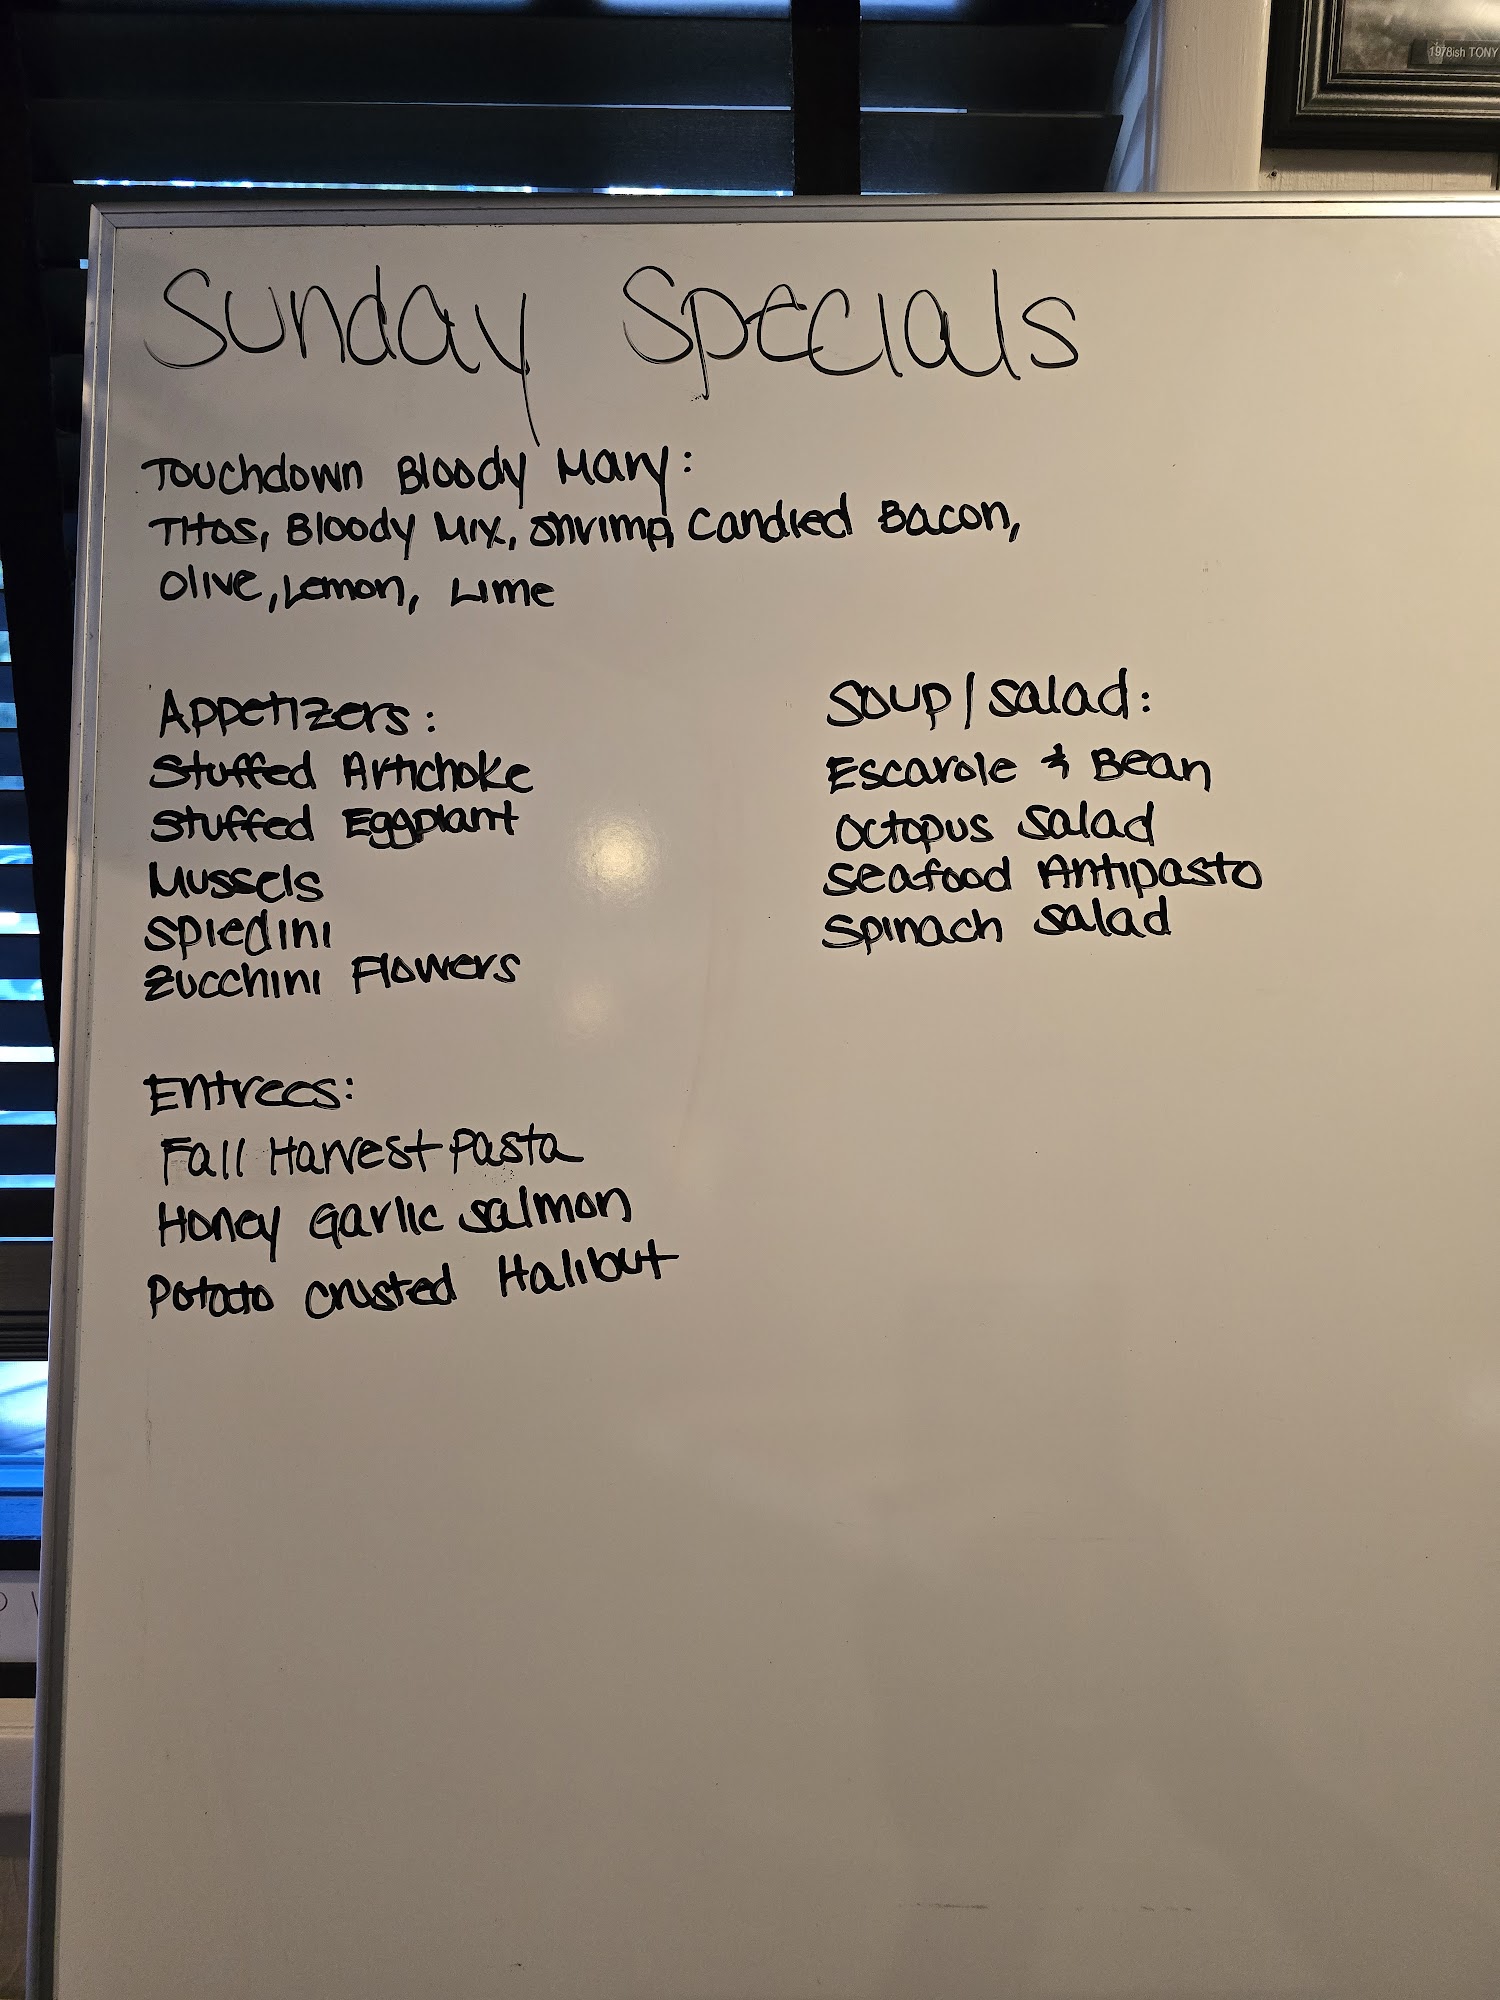 1978ish TONY
Sunday Specials
Touchdown Bloody Mary:
Titos, Bloody Mix, Shrimp, Candied Bacon,
Olive, Lemon, Lime
Appetizers:
Stuffed Artichoke
Stuffed Eggplant
Mussels
Spiedini
Zucchini Flowers
Soup/Salad:
Escarole & Bean
Octopus Salad
Seafood Antipasto
Spinach Salad
Entrees:
Fall Harvest Pasta
Honey Garlic Salmon
Potato Crusted Halibut